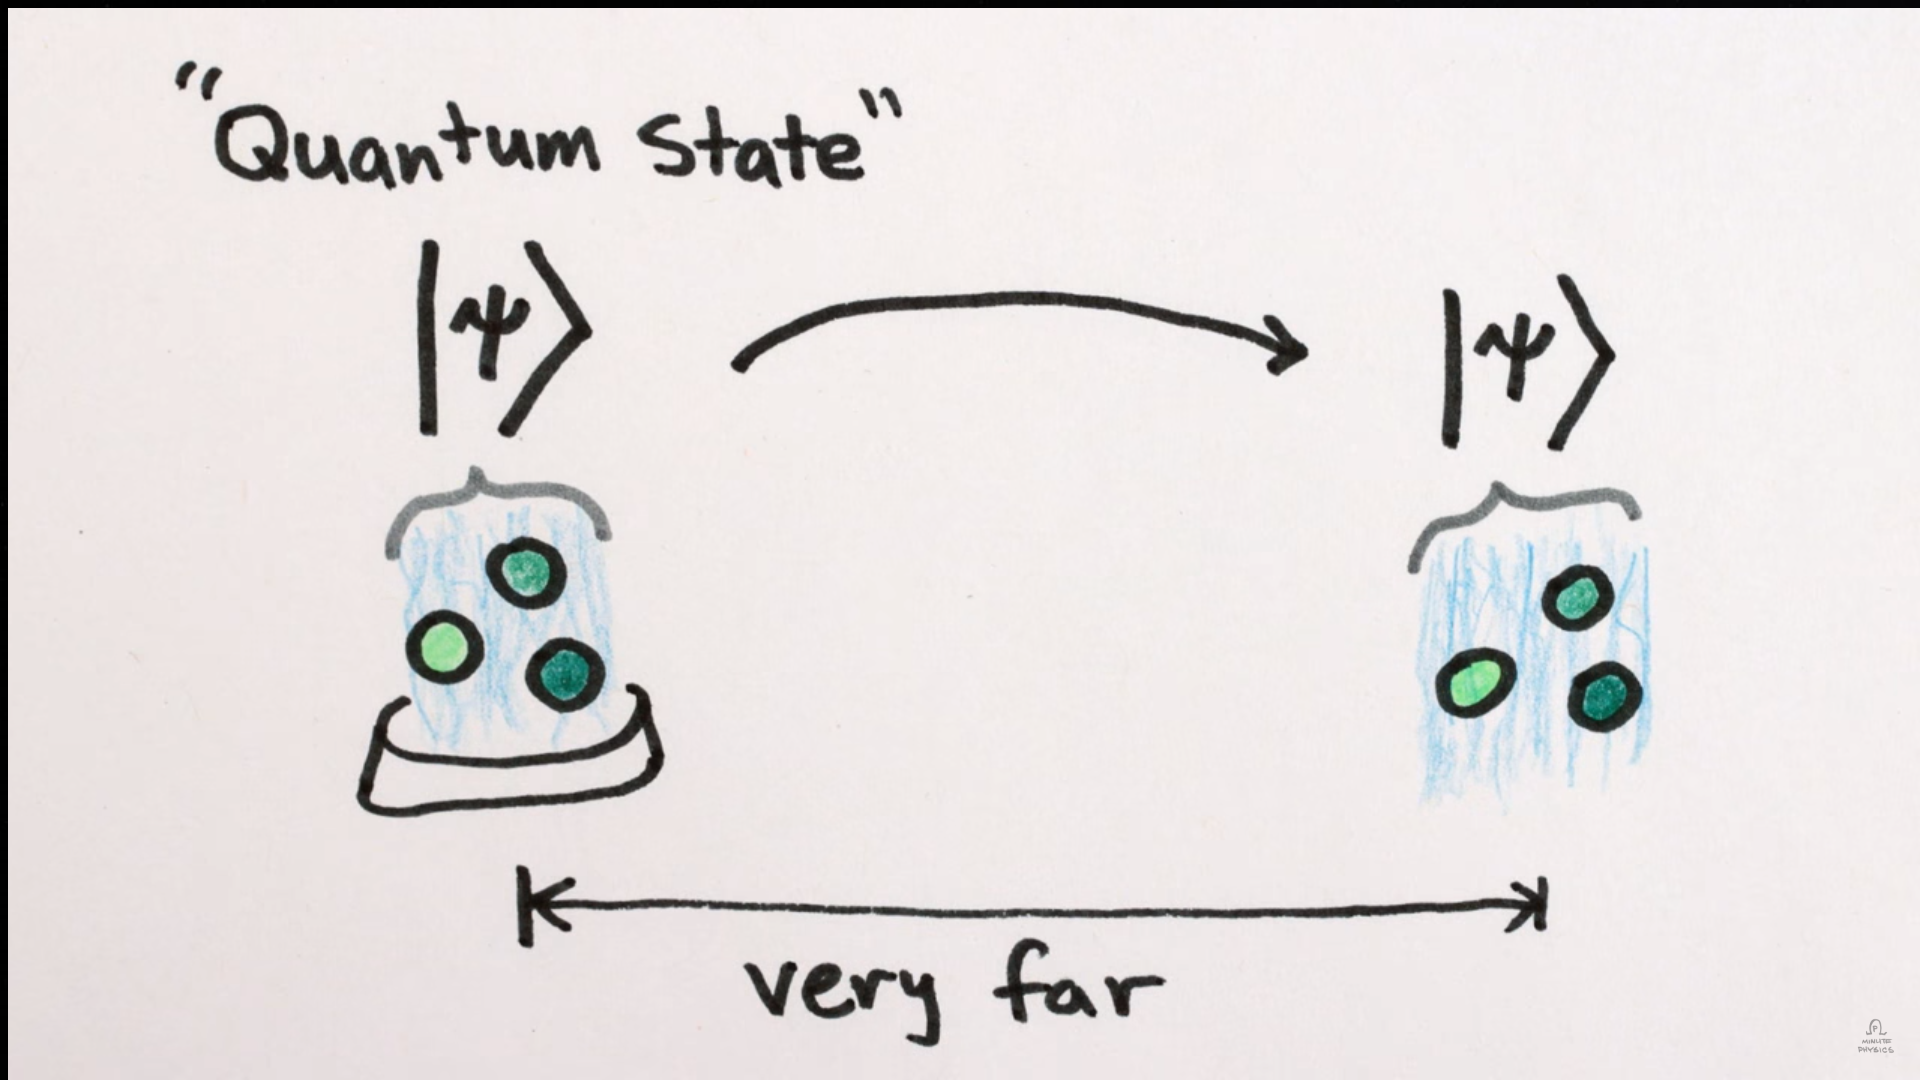 "Quantum State"
|ψ⟩ |ψ⟩
very far
MINUTE
PHYSICS